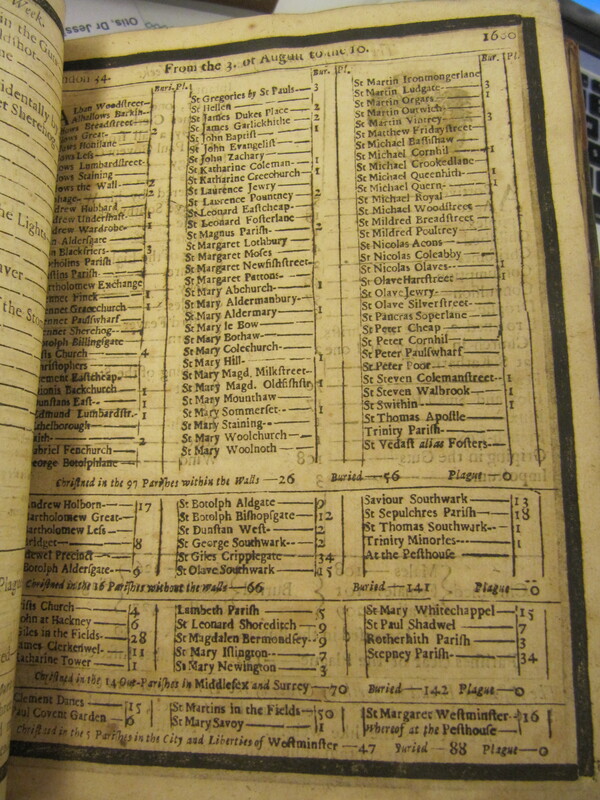 Otis, Dr Jess
Week.
1680
From the 3. of August to the 10.
Bur. Pl.
Bur. Pl.
Bur. Pl.
lban Woodstreet
Alhallows Barkin
ows Breadstreet
ows Great 2
ows Honilane
ows Less
ows Lumbardstreet
ows Staining
ows the Wall 2
drew Hubbard
drew Undershaft 1
drew Wardrobe 1
n Aldersgate
n Blackfriers 3
tholins Parish
stlins Parish
rtholomew Exchange
ennet Finck 1
ennet Gracechurch 1
ennet Paulswharf
ennet Sherehog
otolph Billingsgate
ists Church 4
ristophers
ement Eastcheap
ionis Backchurch 1
unstans East 1
dmund Lumbardstr. 1
thelborough
aith 2
abriel Fenchurch
eorge Botolphlane
St Gregories by St Pauls 3
St Hellen
St James Dukes Place 2
St James Garlickhithe 1
St John Baptist
St John Evangelist
St John Zachary
St Katharine Coleman 1
St Katharine Creechurch 1
St Laurence Jewry
St Laurence Pountney 2
St Leonard Eastcheap
St Leonard Fosterlane
St Magnus Parish 2
St Margaret Lothbury
St Margaret Moses
St Margaret Newfishstreet
St Margaret Pattons
St Mary Abchurch 1
St Mary Aldermanbury
St Mary Aldermary 1
St Mary le Bow
St Mary Bothaw
St Mary Colechurch
St Mary Hill 1
St Mary Magd. Milkstreet
St Mary Magd. Oldfishstr. 1
St Mary Mounthaw
St Mary Sommerset 1
St Mary Staining
St Mary Woolchurch
St Mary Woolnoth
St Martin Ironmongerlane
St Martin Ludgate 3
St Martin Orgars 1
St Martin Outwich
St Martin Vintrey 3
St Matthew Fridaystreet
St Michael Bassishaw
St Michael Cornhil 1
St Michael Crookedlane
St Michael Queenhith 1
St Michael Quern 1
St Michael Royal
St Michael Woodstreet
St Mildred Breadstreet
St Mildred Poultrey
St Nicolas Acons
St Nicolas Coleabby
St Nicolas Olaves 1
St Olave Hartstreet 1
St Olave Jewry
St Olave Silverstreet
St Pancras Soperlane
St Peter Cheap
St Peter Cornhil
St Peter Paulswharf
St Peter Poor
St Steven Colemanstreet 1
St Steven Walbrook 1
St Swithin 1
St Thomas Apostle
Trinity Parish
St Vedast alias Fosters
Christned in the 97 Parishes within the Walls 26 Buried 56 Plague 0
ndrew Holborn 17
artholomew Great
artholomew Less
ridget 8
dewel Precinct
otolph Aldersgate 6
St Botolph Aldgate 9
St Botolph Bishopsgate 12
St Dunstan West 2
St George Southwark 2
St Giles Cripplegate 34
St Olave Southwark 15
Saviour Southwark 13
St Sepulchres Parish 18
St Thomas Southwark 1
Trinity Minories 1
At the Pesthouse
Christned in the 16 Parishes without the Walls 66 Buried 141 Plague 0
rists Church 4
ohn at Hackney 6
Giles in the Fields 28
ames Clerkenwel 11
atharine Tower 1
Lambeth Parish 5
St Leonard Shoreditch 9
St Magdalen Bermondsey 9
St Mary Islington 7
St Mary Newington 3
St Mary Whitechappel 15
St Paul Shadwel 7
Rotherhith Parish 3
Stepney Parish 34
Christned in the 14 Out-Parishes in Middlesex and Surrey 70 Buried 142 Plague 0
Clement Danes 15
Paul Covent Garden 6
St Martins in the Fields 50
St Mary Savoy 1
St Margaret Westminster 16
Whereof at the Pesthouse
Christned in the 5 Parishes in the City and Liberties of Westminster 47 Buried 88 Plague 0